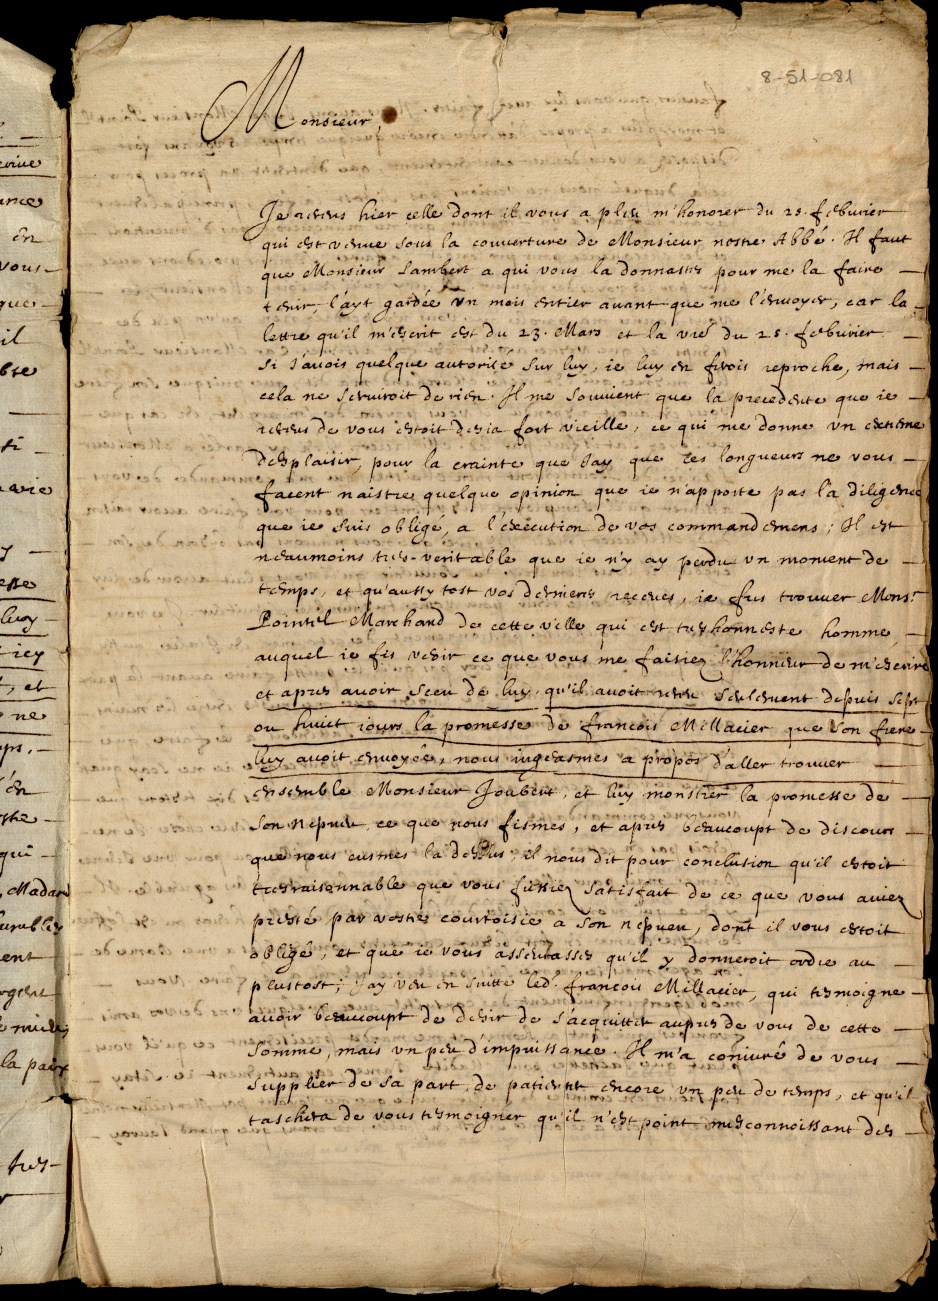 8-51-081
Monsieur,
Je receus hier celle dont il vous a pleu m'honorer du 28. feburier
qui est venue sous la couverture de Monsieur nostre Abbé. Il faut
que Monsieur Lambert a qui vous la donnastes pour me la faire
tenir, l'ayt gardée un mois entier auant que me l'enuoyer, car la
lettre qu'il m'escrit est du 23. Mars et la vre du 28. feburier
Si J'auois quelque autorité sur luy, ie luy en ferois reproche, mais
cela ne seruiroit de rien. Il me souuient que la precedente que ie
receus de vous estoit desia fort vieille, ce qui me donne un extreme
desplaisir, pour la crainte que J'ay que ces longueurs ne vous
facent naistre quelque opinion que ie n'apporte pas la diligence
que ie suis obligé, a l'execution de vos commandemens; Il est
neaumoins tres-veritable que ie n'y ay perdu un moment de
temps, et qu'aussy tost vos dernieres receues, ie fus trouuer Monsr
Pointel Marchand de cette ville qui est tres honneste homme
auquel ie fis veoir ce que vous me faisiez l'honneur de m'escrire
et apres auoir sceu de luy, qu'il auoit receu seulement depuis sept
ou huict iours la promesse de francois Millacier que son frere
luy auoit enuoyée, nous iugeasmes a propos d'aller trouuer
ensemble Monsieur Joubert, et luy monstrer la promesse de
son Nepueu, ce que nous fismes, et apres beaucoupt de discours
que nous eusmes la dessus, il nous dit pour conclusion qu'il estoit
tres raisonnable que vous fussiez satisfait de ce que vous auiez
presté par vostre courtoisie a son nepueu, dont il vous estoit
obligé, et que ie vous asseurasse qu'il y donneroit ordre au
plustost; J'ay veu en suitte led. francois Millacier, qui tesmoigne
auoir beaucoupt de desir de s'acquitter aupres de vous de cette
somme, mais un peu d'impuissance. Il m'a coniuré de vous
supplier de sa part de patienter encore un peu de temps, et qu'il
taschera de vous tesmoigner qu'il n'est point mesconnoissant des